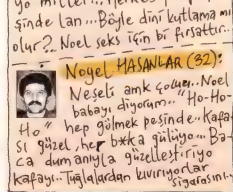 şinde lan... Böyle dini kutlama mı
olur?.. Noel seks için bir fırsattır...
Noyel HASANLAR (32):
Neşeli amk çocuğu... Noel
babayı diyorum... "Ho-Ho-
Ho" hep gülmek peşinde.. Kafa-
sı güzel, her b*ka gülüyo... Ba-
ca dumanıyla güzelleştiriyo
kafayı.. Tuğlalardan kıvırıyorlar
sigarasını..